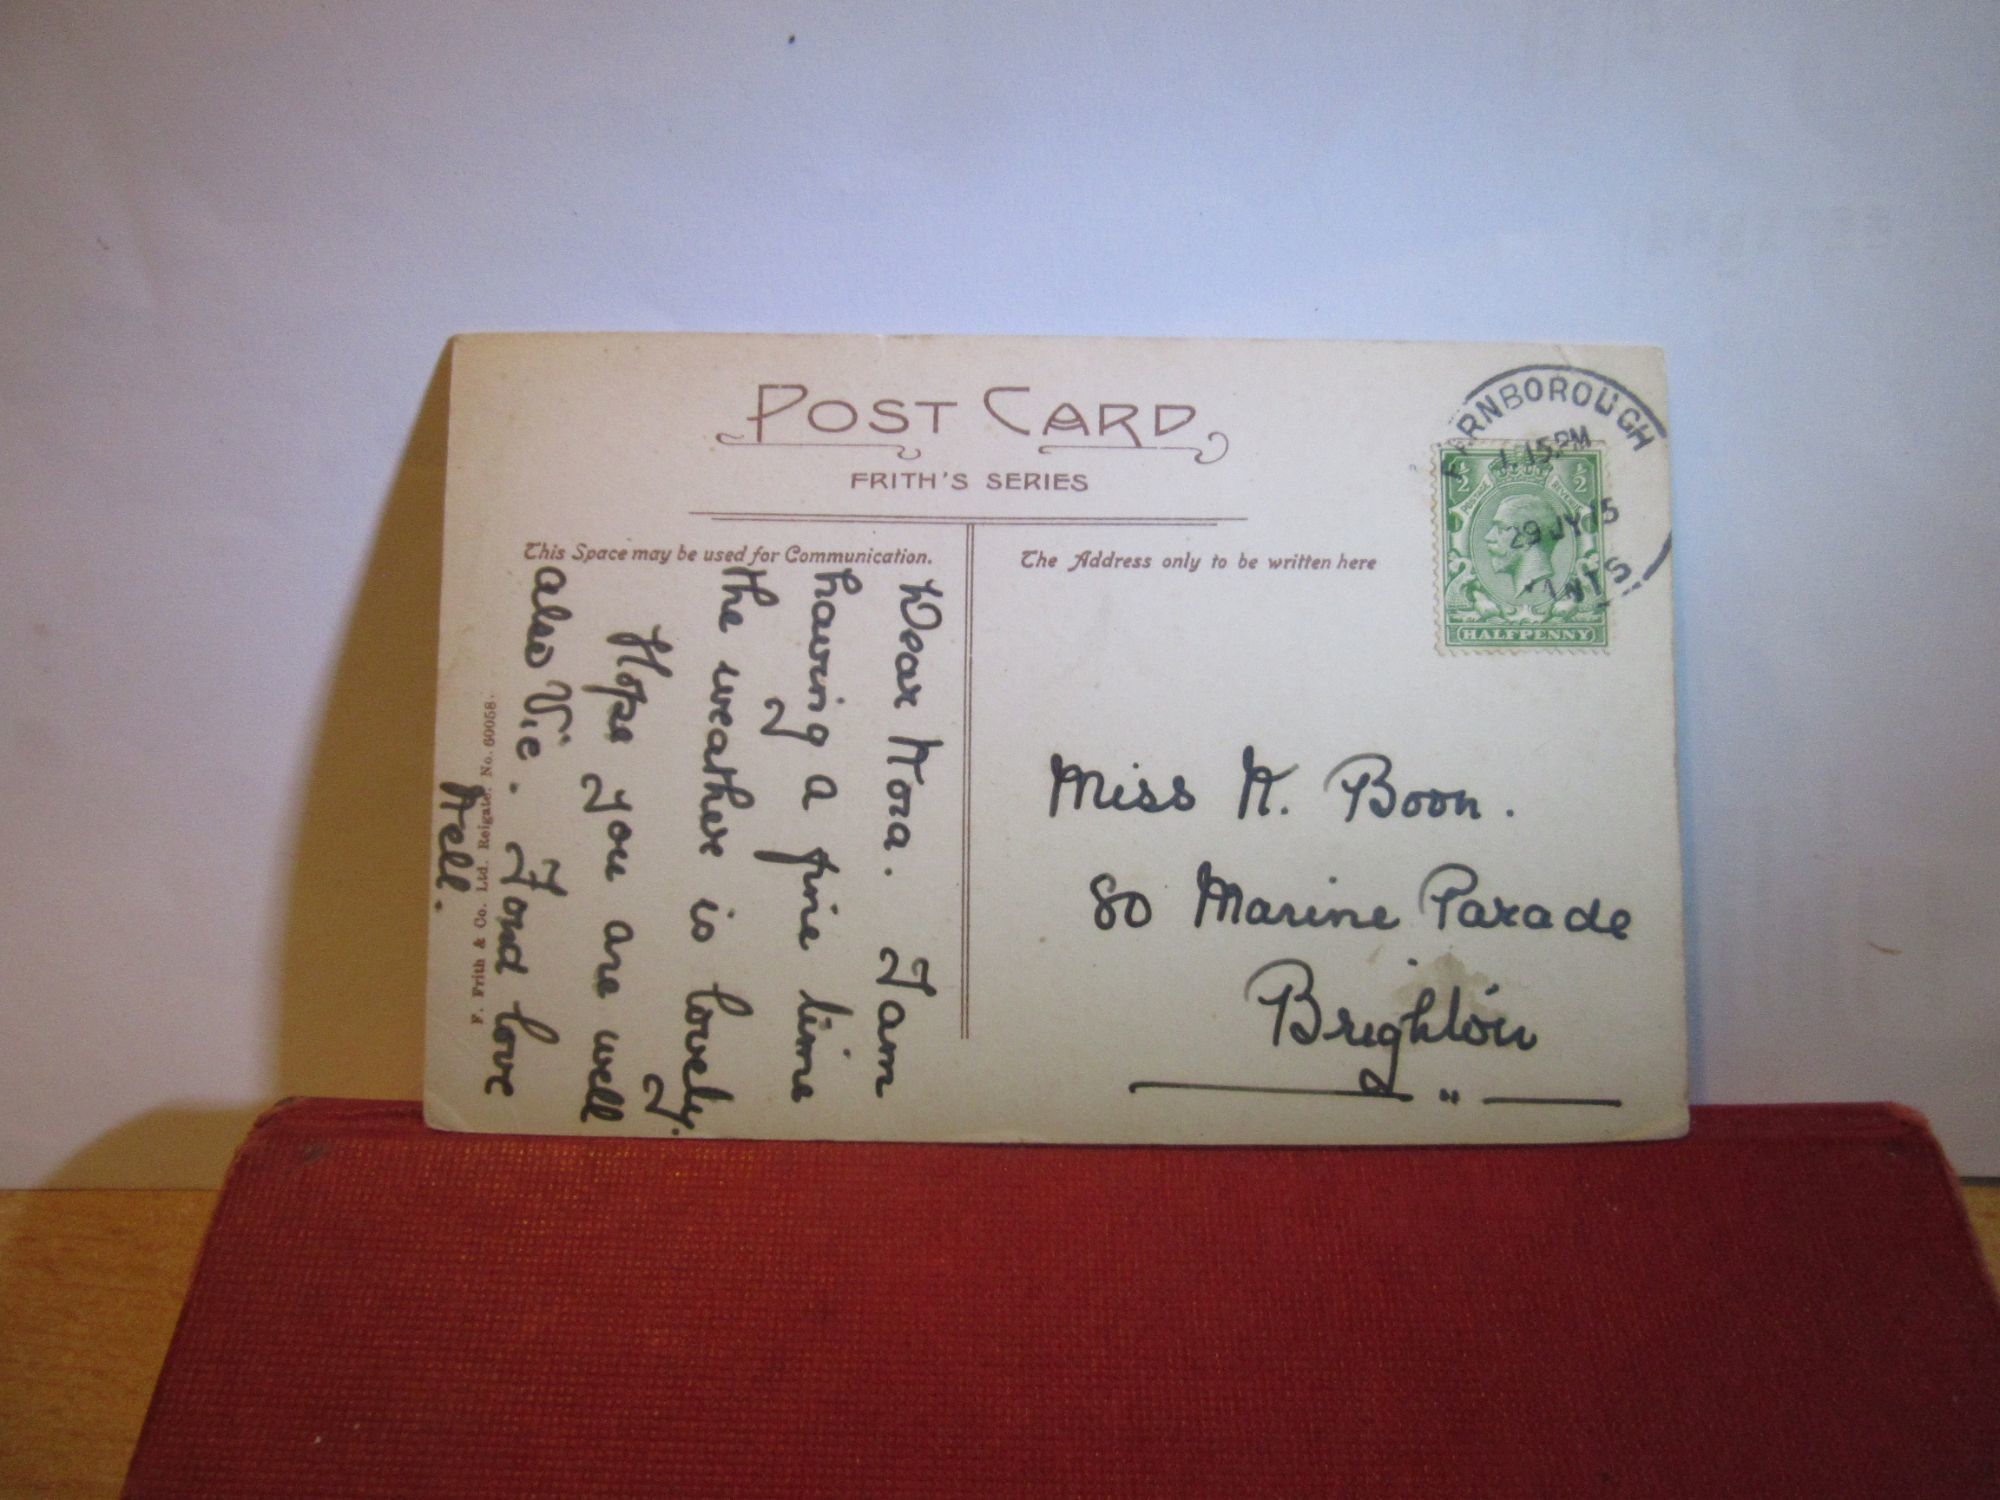 POST CARD
FRITH'S SERIES
This Space may be used for Communication.
The Address only to be written here
Dear Nora. I am
having a fine time
the weather is lovely.
Hope you are well
also Vie. Fond love
Nell.
F. Frith & Co. Ltd. Reigate. No. 60058.
Miss N. Boon.
80 Marine Parade
Brighton
FARNBOROUGH
1.15 PM
29 JY 15
HANTS
½ ½
POSTAGE REVENUE
HALFPENNY